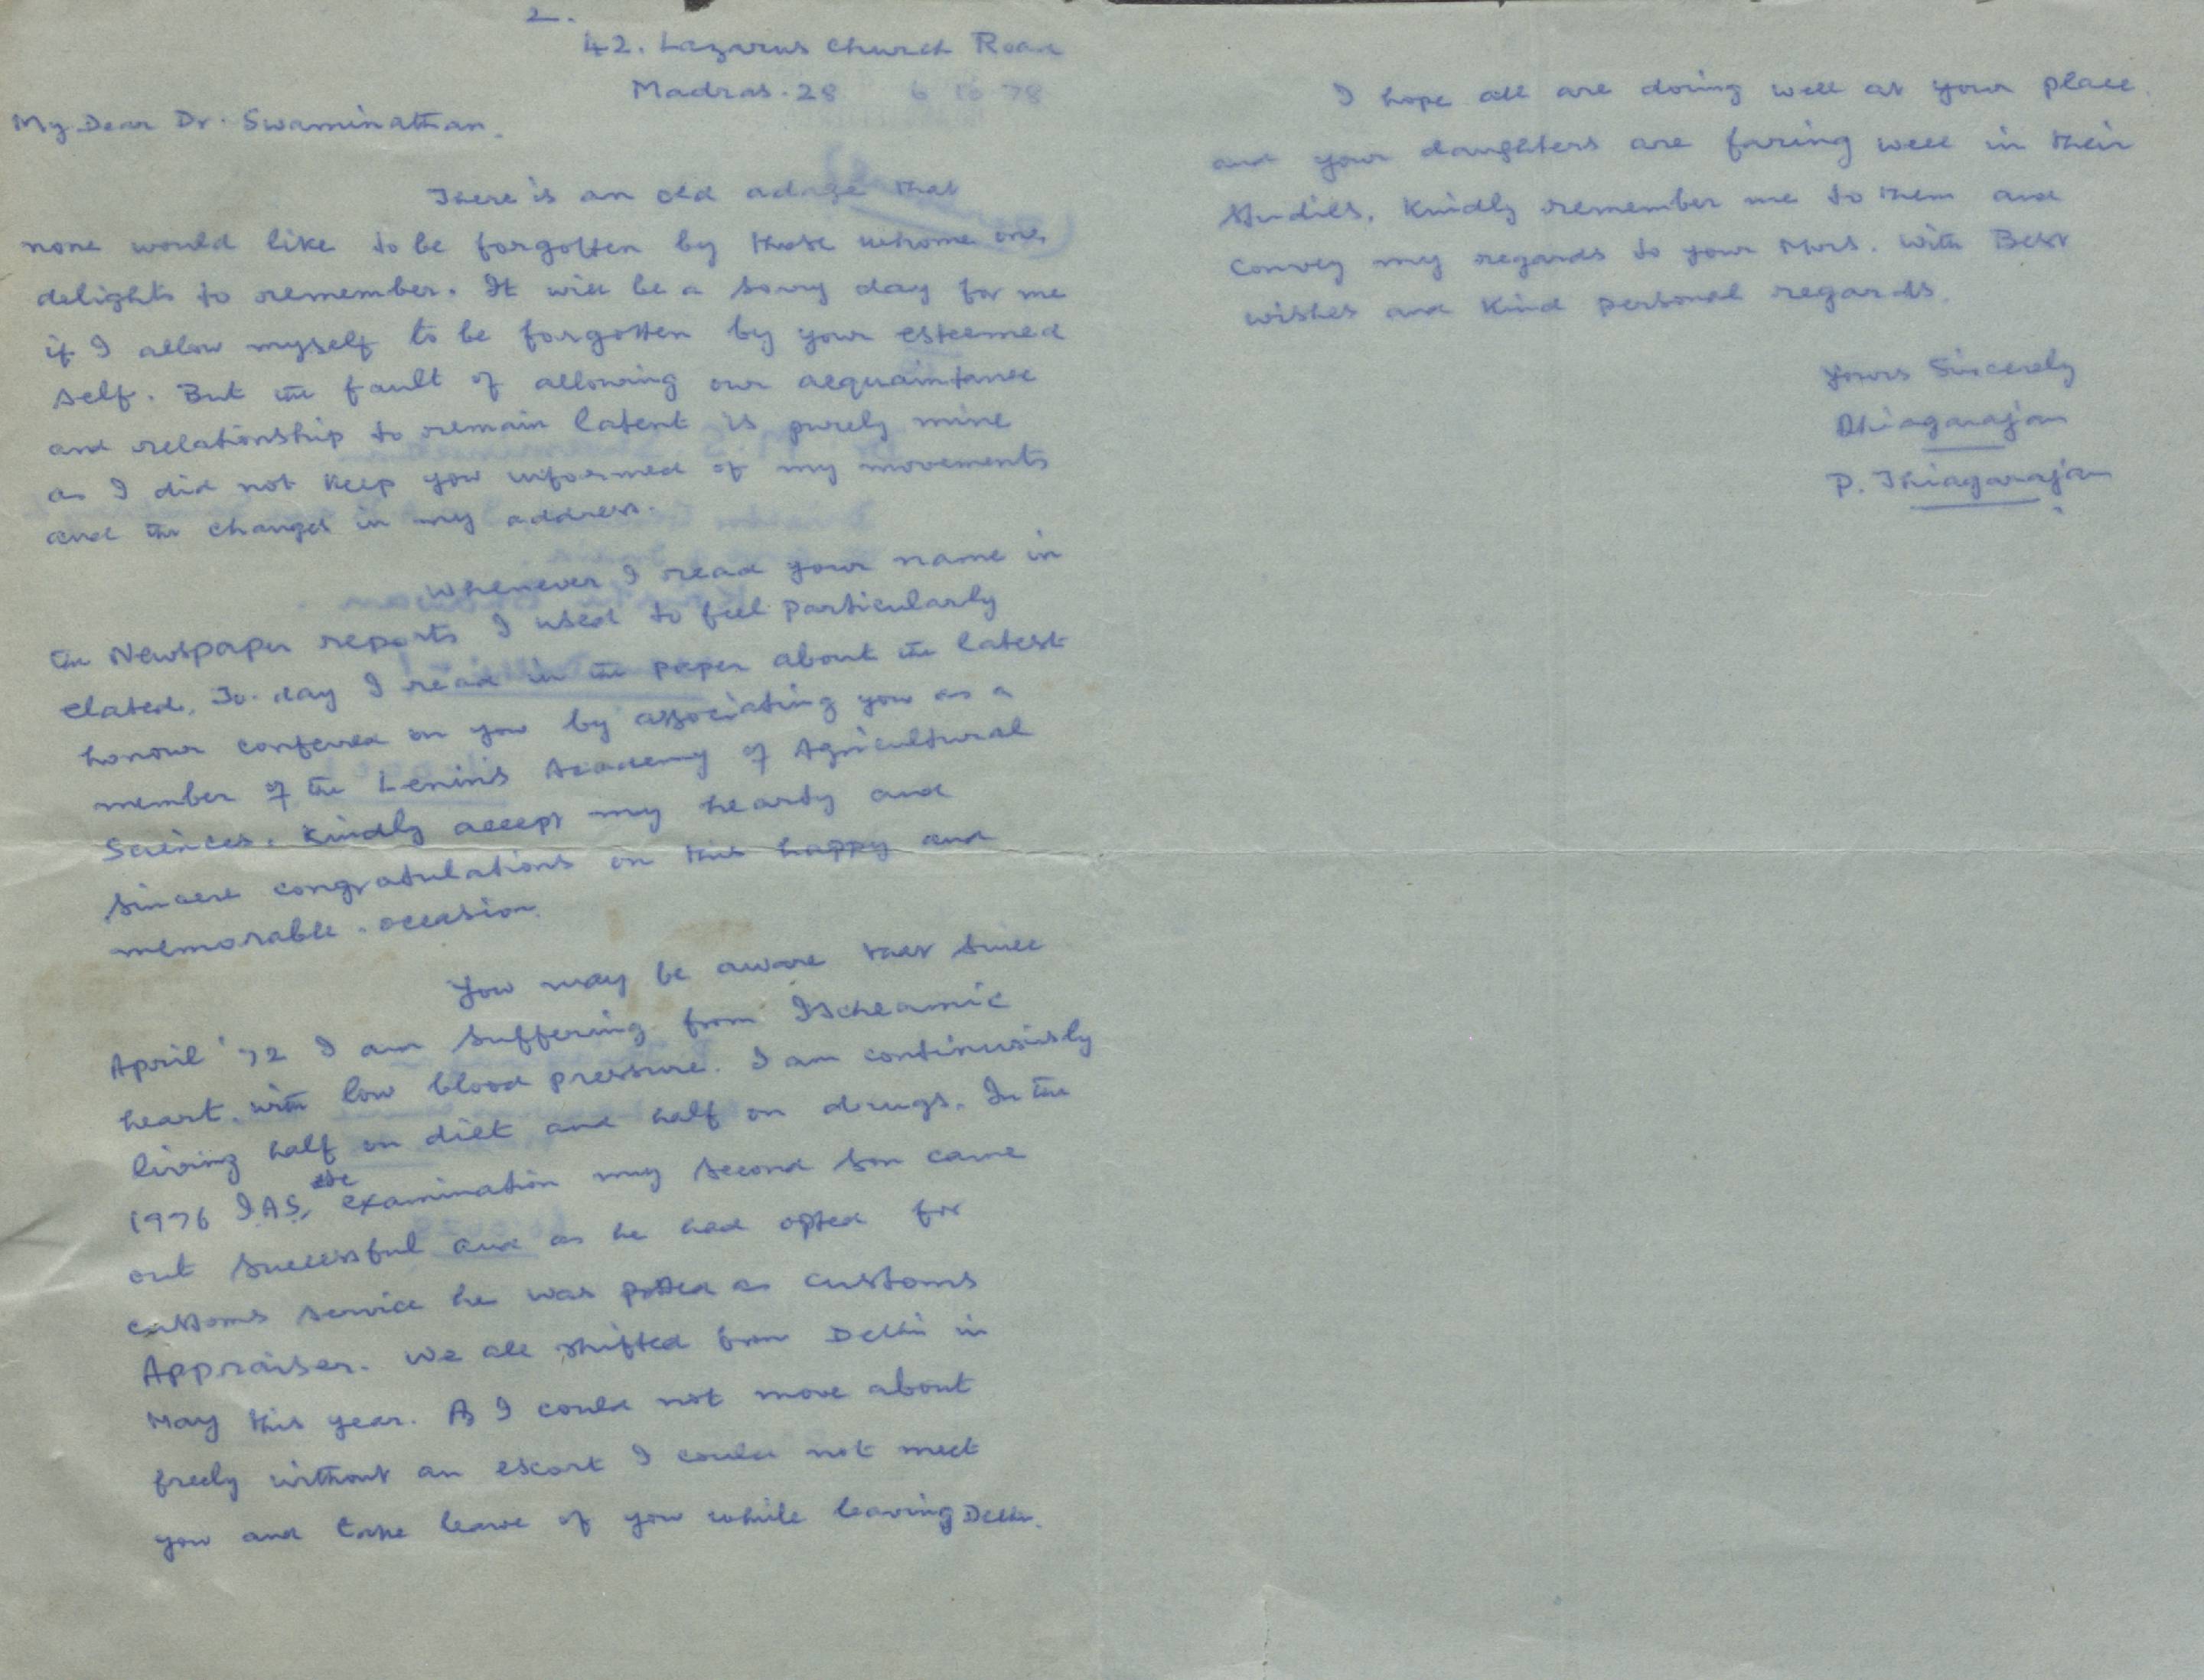 2.
42. Lazarus Church Road
Madras. 28 6 10 78
My Dear Dr. Swaminathan.
There is an old adage that
none would like to be forgotten by those whome one
delights to remember. It will be a sorry day for me
if I allow myself to be forgotten by your esteemed
self. But the fault of allowing our acquaintance
and relationship to remain latent is purely mine
as I did not keep you informed of my movements
and the changes in my address.
Whenever I read your name in
the Newspaper reports I used to feel particularly
elated. To-day I read in the paper about the latest
honour conferred on you by associating you as a
member of the Lenin's Academy of Agricultural
Sciences. Kindly accept my hearty and
sincere congratulations on this happy and
memorable occasion.
You may be aware that since
April '72 I am suffering from Ischeamic
heart with low blood pressure. I am continuously
living half on diet and half on drugs. In the
1976 I.A.S. etc examination my second son came
out successful and as he had opted for
customs service he was posted as customs
Appraiser. We all shifted from Delhi in
May this year. As I could not move about
freely without an escort I could not meet
you and take leave of you while leaving Delhi.
I hope all are doing well at your place
and your daughters are faring well in their
studies. Kindly remember me to them and
convey my regards to your Mrs. With Best
wishes and kind personal regards.
Yours Sincerely
Thiagarajan
P. Thiagarajan